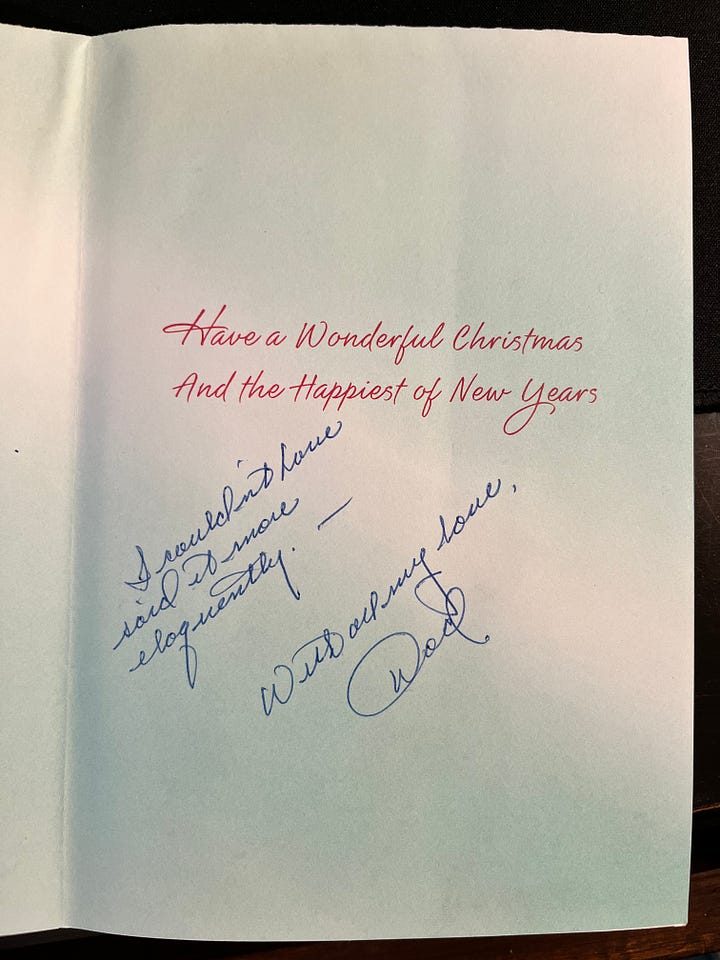 Have a Wonderful Christmas
And the Happiest of New Years
I couldn't have
said it more
eloquently. —
With all my love,
Dad